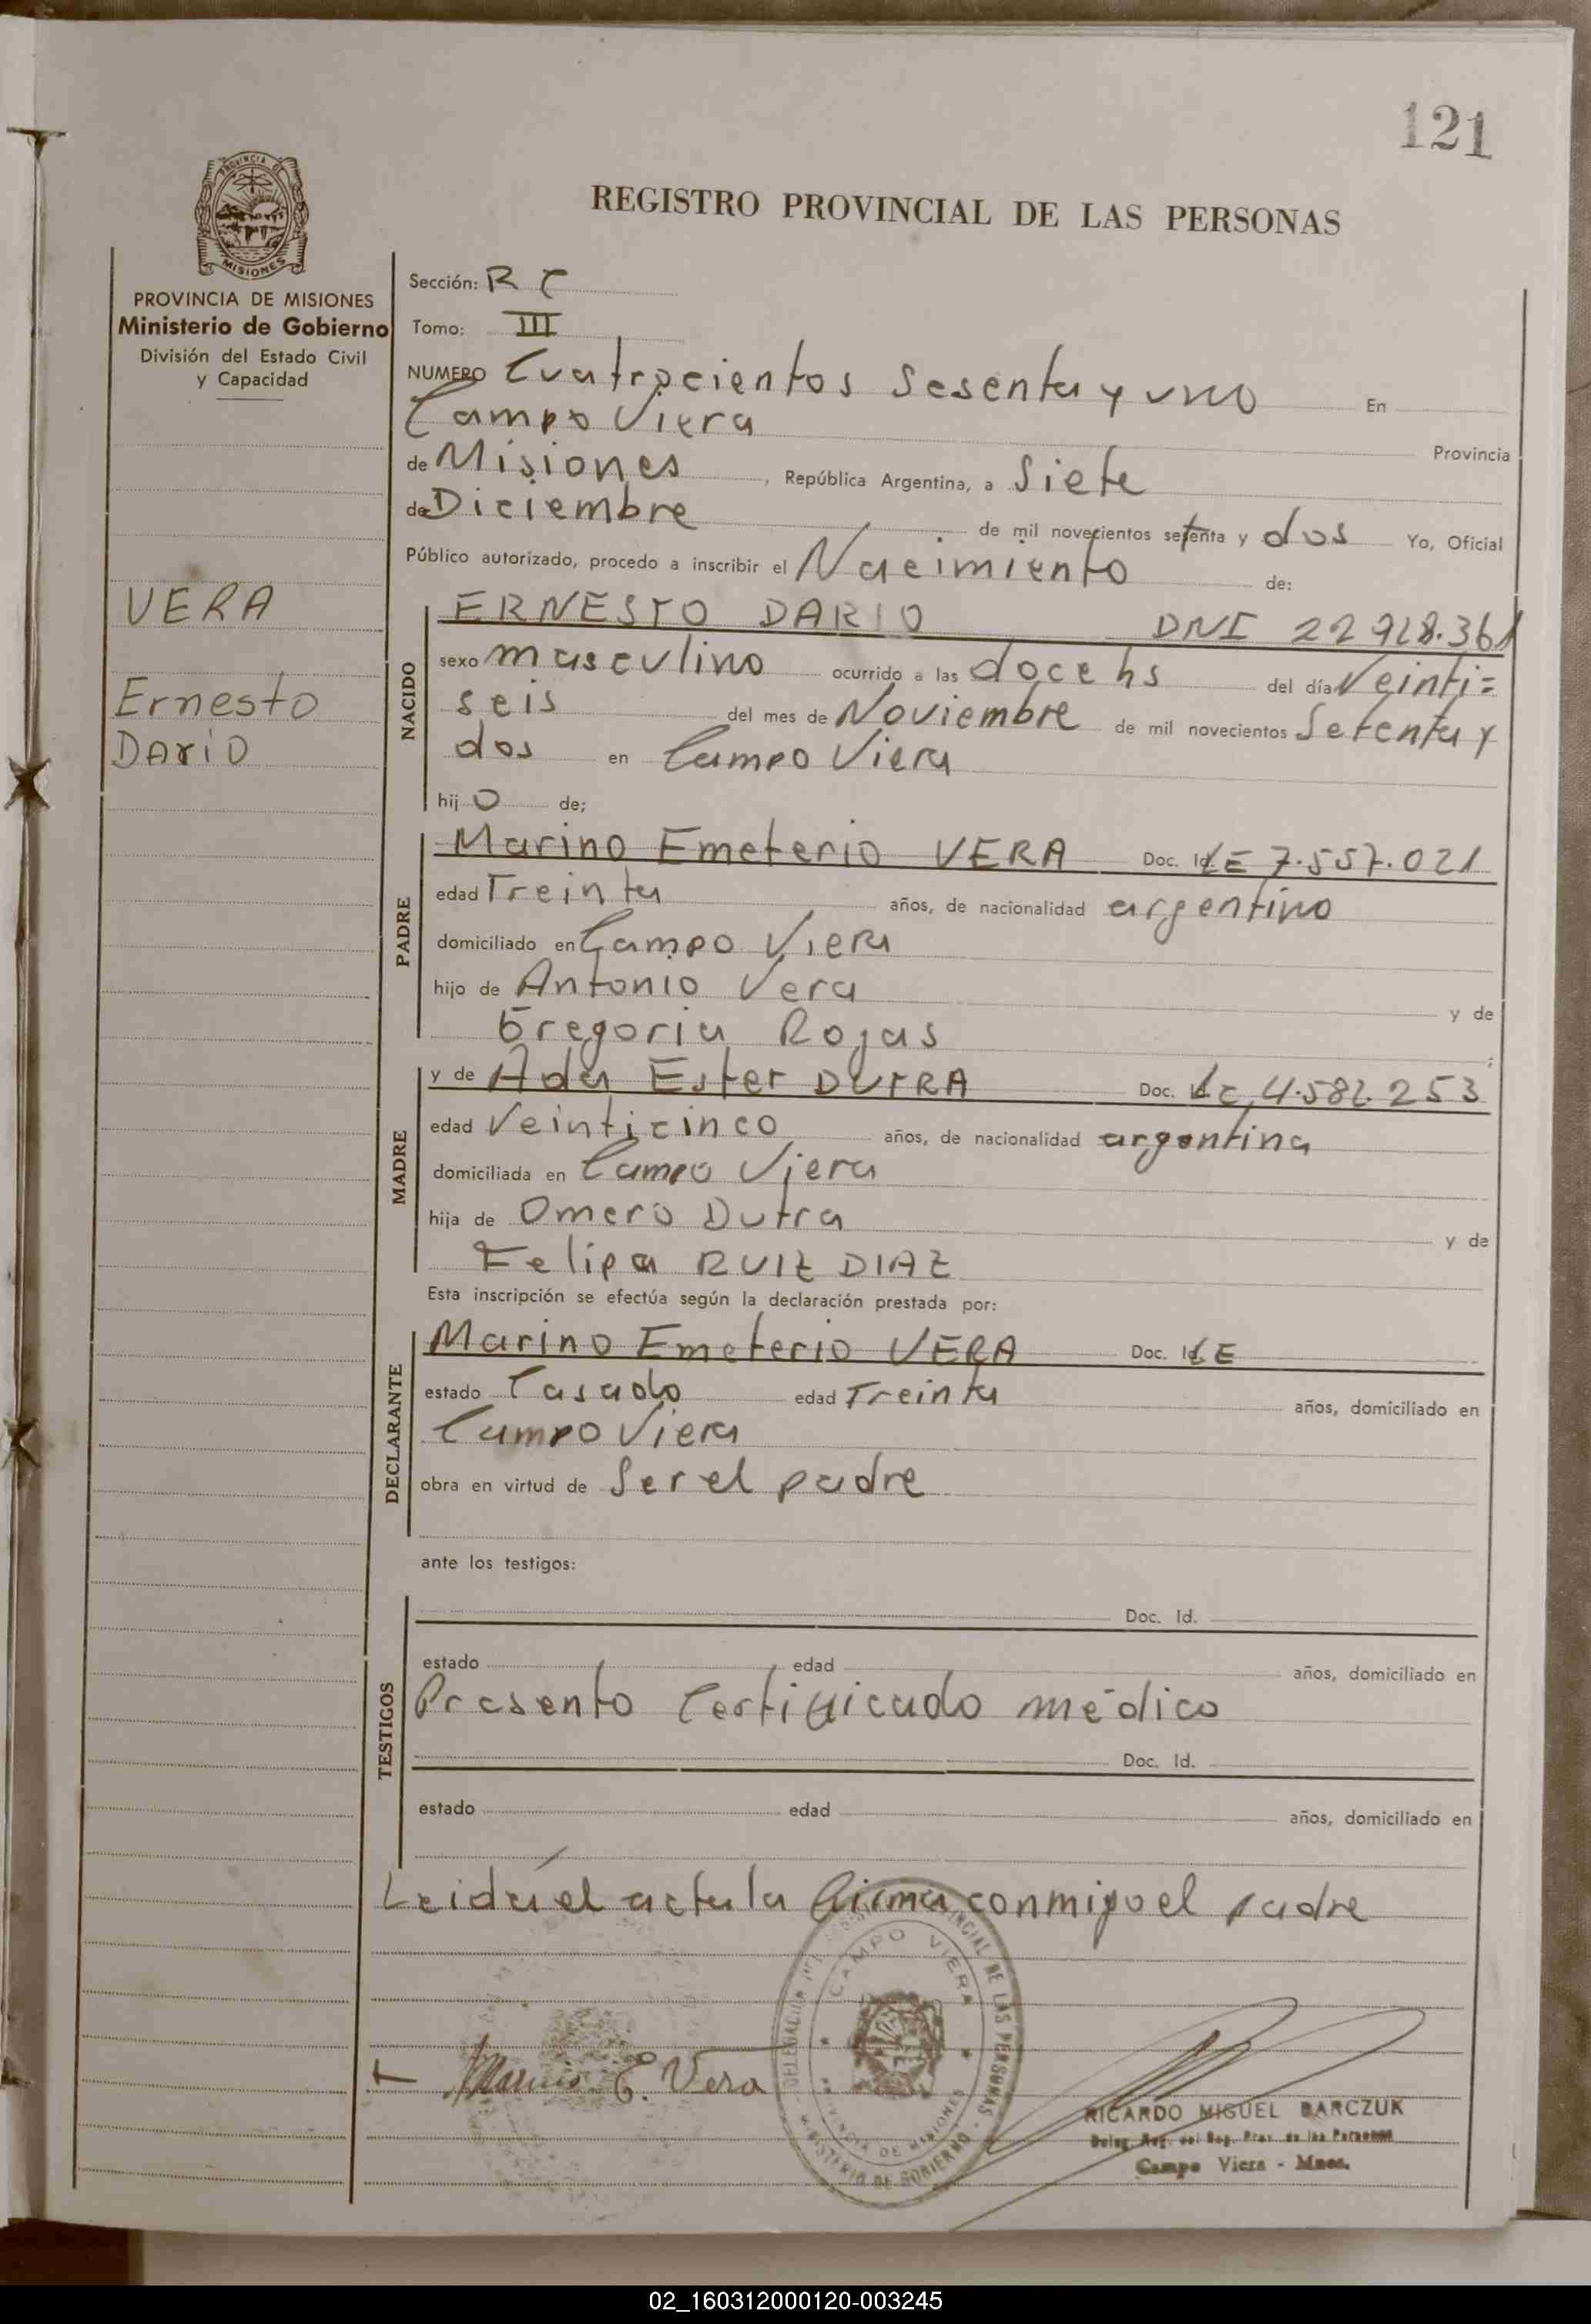 121
PROVINCIA DE MISIONES
REGISTRO PROVINCIAL DE LAS PERSONAS
PROVINCIA DE MISIONES
Ministerio de Gobierno
División del Estado Civil
y Capacidad
VERA
Ernesto
Dario
Sección: R C
Tomo: III
NUMERO Cuatrocientos Sesenta y uno En
Campo Viera Provincia
de Misiones, República Argentina, a Siete
de Diciembre de mil novecientos setenta y dos Yo, Oficial
Público autorizado, procedo a inscribir el Nacimiento de:
NACIDO
ERNESTO DARIO DNI 22.928.361
sexo masculino ocurrido a las doce hs del día Veinti=
seis del mes de Noviembre de mil novecientos Setenta y
dos en Campo Viera
hijo de;
PADRE
Marino Emeterio VERA Doc. Id. LE 7.557.021
edad Treinta años, de nacionalidad argentino
domiciliado en Campo Viera
hijo de Antonio Vera y de
Gregoria Rojas ;
MADRE
y de Ada Ester DUTRA Doc. LC 4.582.253
edad Veinticinco años, de nacionalidad argentina
domiciliada en Campo Viera
hija de Omero Dutra y de
Felipa RUIZ DIAZ
Esta inscripción se efectúa según la declaración prestada por:
DECLARANTE
Marino Emeterio VERA Doc. Id. LE
estado Casado edad Treinta años, domiciliado en
Campo Viera
obra en virtud de Ser el padre
ante los testigos:
TESTIGOS
Doc. Id.
estado edad años, domiciliado en
Presento Certificado médico
Doc. Id.
estado edad años, domiciliado en
Leida el acta la firma conmigo el padre
CAMPO VIERA
PROVINCIA DE MISIONES
MINISTERIO DE GOBIERNO
Marino E. Vera
RICARDO MIGUEL BARCZUK
Deleg. Reg. del Reg. Prov. de las Personas
Campo Viera - Mnes.
02_160312000120-003245